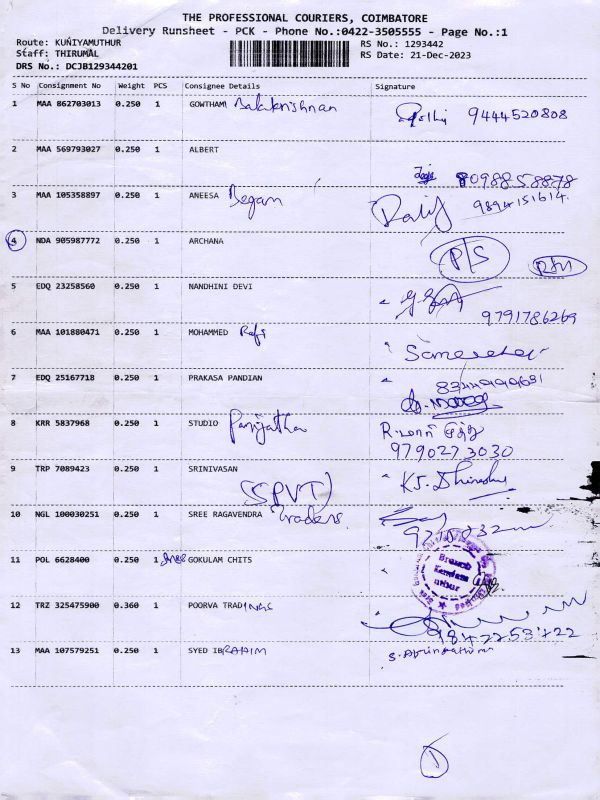 THE PROFESSIONAL COURIERS, COIMBATORE
Delivery Runsheet - PCK - Phone No.:0422-3505555 - Page No.:1
Route: KUNIYAMUTHUR RS No.: 1293442
Staff: THIRUMAL RS Date: 21-Dec-2023
DRS No.: DCJB129344201
S No Consignment No Weight PCS Consignee Details Signature
1 MAA 862703013 0.250 1 GOWTHAM Balakrishnan 9444520808
2 MAA 569793027 0.250 1 ALBERT
8098858878
3 MAA 105358897 0.250 1 ANEESA Begam 9894151614
4 NDA 905987772 0.250 1 ARCHANA P/S
5 EDQ 23258560 0.250 1 NANDHINI DEVI
9791786269
6 MAA 101880471 0.250 1 MOHAMMED Rafi
7 EDQ 25167718 0.250 1 PRAKASA PANDIAN
8 KRR 5837968 0.250 1 STUDIO Parijatha
9790273030
9 TRP 7089423 0.250 1 SRINIVASAN
(SPVT)
10 NGL 100030251 0.250 1 SREE RAGAVENDRA Traders
11 POL 6628400 0.250 1 GOKULAM CHITS
Branch
12 TRZ 325475900 0.360 1 POORVA TRADINGS
9842253722
13 MAA 107579251 0.250 1 SYED IBRAHIM
1